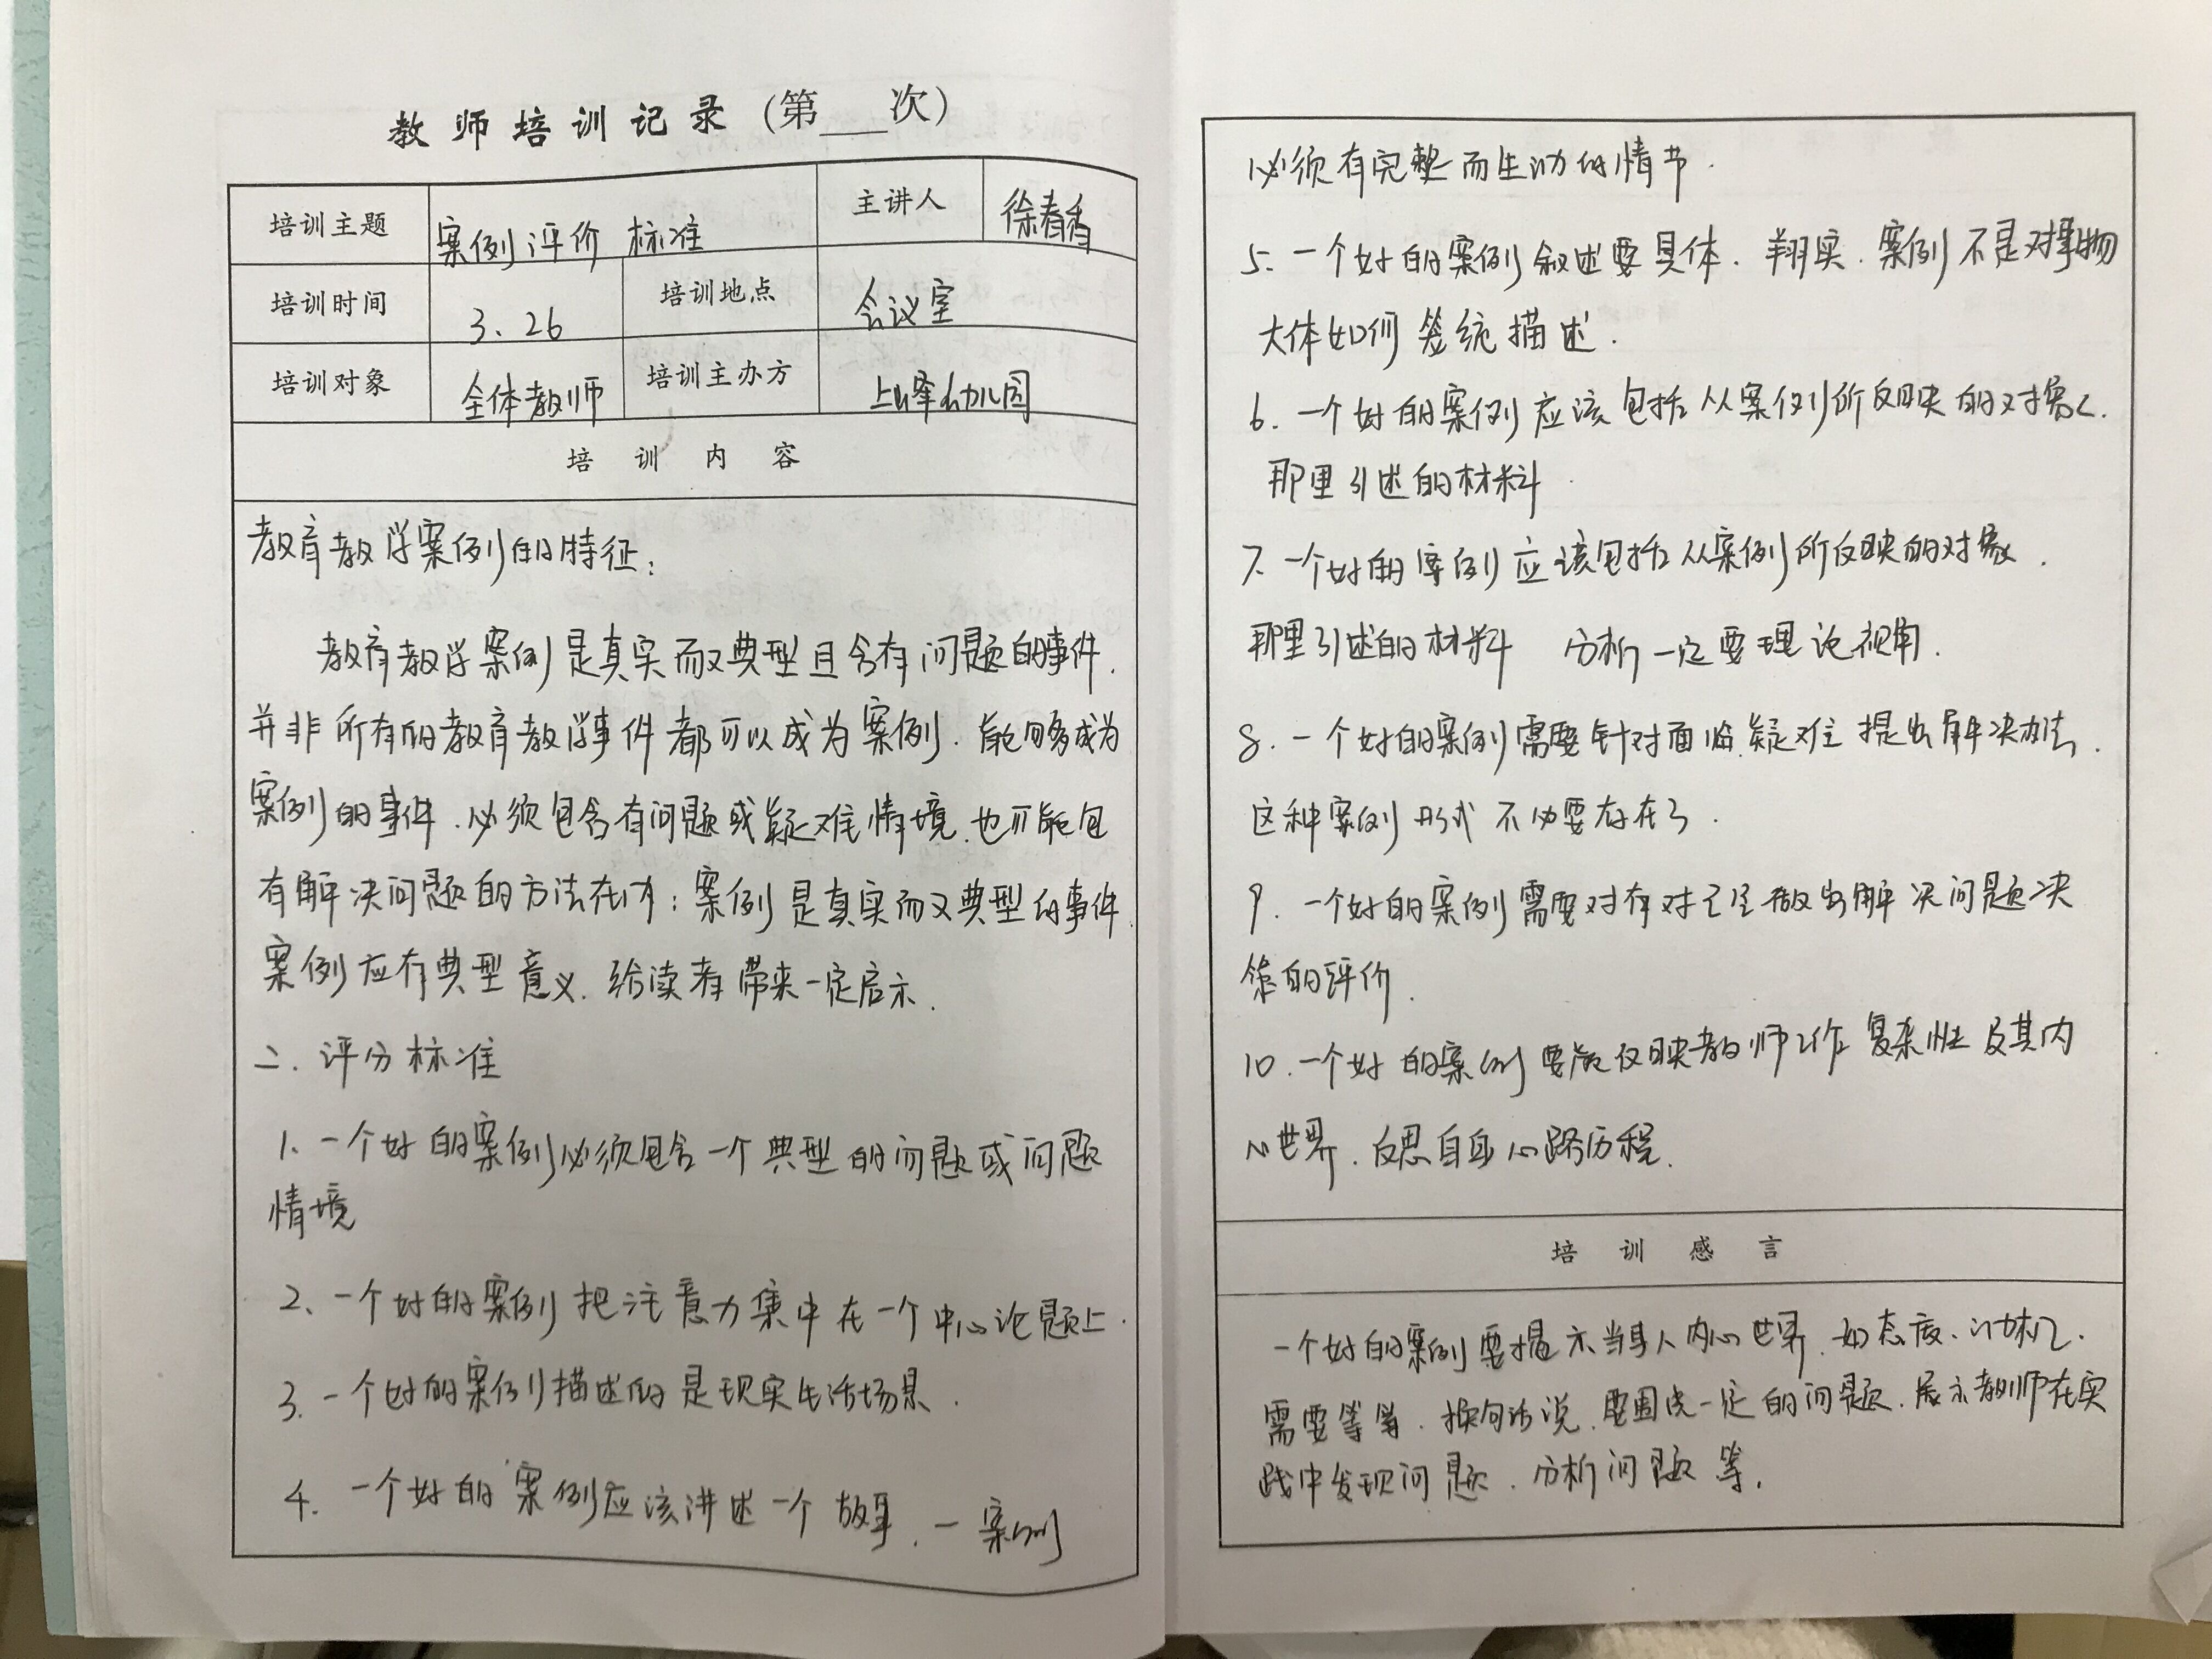 教师培训记录（第___次）
培训主题 案例评价标准 主讲人 徐春香
培训时间 3、26 培训地点 会议室
培训对象 全体教师 培训主办方 上峰幼儿园
培训内容
教育教学案例的特征：
教育教学案例是真实而又典型且含有问题的事件.
并非所有的教育教学事件都可以成为案例.能够成为
案例的事件.必须包含有问题或疑难情境.也可能包
有解决问题的方法在内：案例是真实而又典型的事件.
案例应有典型意义.给读者带来一定启示.
二.评分标准
1、一个好的案例必须包含一个典型的问题或问题
情境
2、一个好的案例把注意力集中在一个中心论题上.
3.一个好的案例描述的是现实生活场景.
4.一个好的案例应该讲述一个故事.一案例
必须有完整而生动的情节.
5.一个好的案例叙述要具体.翔实.案例不是对事物
大体如何笼统描述.
6.一个好的案例应该包括从案例所反映的对象.
那里引述的材料.
7.一个好的案例应该包括从案例所反映的对象.
那里引述的材料 分析一定要理论视角.
8.一个好的案例需要针对面临疑难提出解决办法.
这种案例形式不必要存在了.
9.一个好的案例需要对有对已经做出解决问题决
策的评价.
10.一个好的案例要能反映教师工作复杂性及其内
心世界.反思自身心路历程.
培训感言
一个好的案例要揭示当事人内心世界.如态度、动机.
需要等等.换句话说.要围绕一定的问题.展示教师在实
践中发现问题.分析问题等.